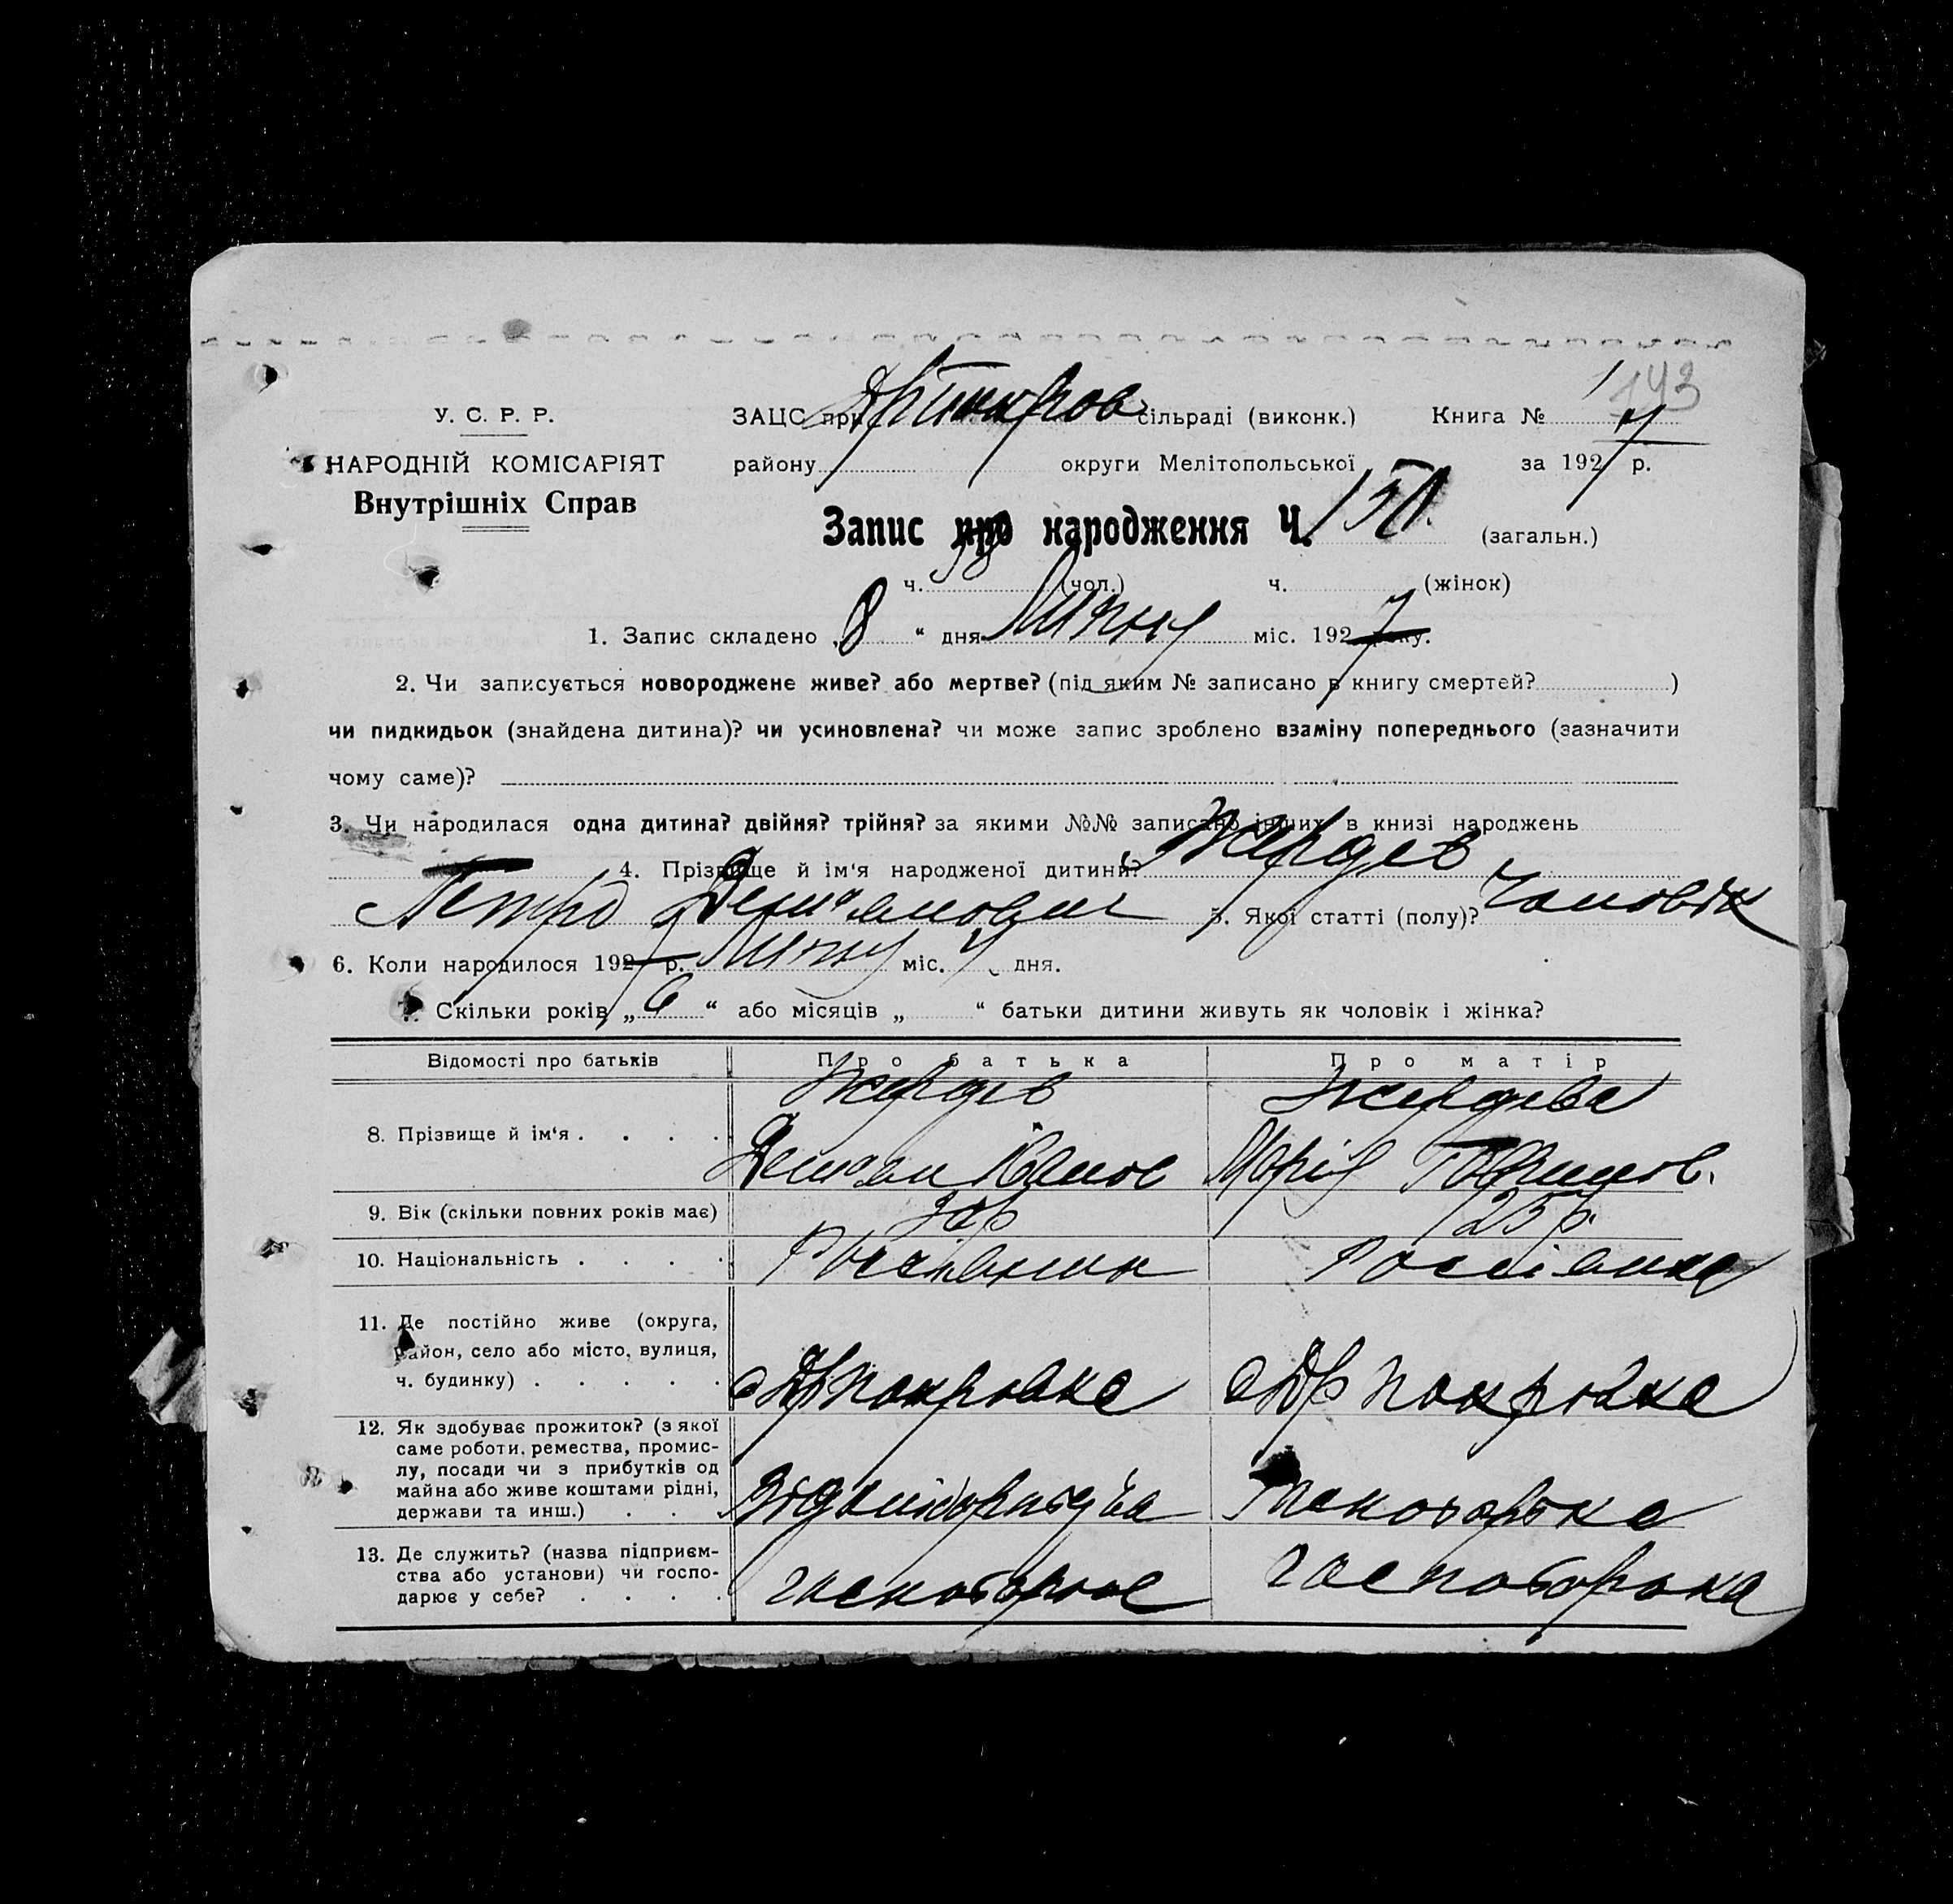 143
У. С. Р. Р. ЗАЦС при сільраді (виконк.) Книга №
НАРОДНІЙ КОМІСАРІЯТ району округи Мелітопольської за 1927 р.
Внутрішніх Справ
Запис про народження Ч. (загальн.)
ч. 98 (чол.) ч. (жінок)
1. Запис складено „8“ дня Липня міс. 1927 року.
2. Чи записується новороджене живе? або мертве? (під яким № записано в книгу смертей? )
чи пидкидьок (знайдена дитина)? чи усиновлена? чи може запис зроблено взаміну попереднього (зазначити
чому саме)?
3. Чи народилася одна дитина? двійня? трійня? за якими №№ записано інших в книзі народжень
4. Прізвище й ім‘я народженої дитини? Жердев
Петро Демянович 5. Якої статті (полу)? Чоловік
6. Коли народилося 1927 р. Липня міс. дня.
7. Скільки років „6“ або місяців „ “ батьки дитини живуть як чоловік і жінка?
Відомості про батьків Про батька Про матір
8. Прізвище й ім‘я . . . . Жердев Жердева
Демян Іванов Марія
9. Вік (скільки повних років має) 25 р.
10. Національність . . . . Росіянин Россіанка
11. Де постійно живе (округа,
район, село або місто, вулиця,
ч. будинку) . . . . . с Др Покровка с Др Покровка
12. Як здобуває прожиток? (з якої
саме роботи, ремества, промис-
лу, посади чи з прибутків од
майна або живе коштами рідні,
держави та инш.) . . .
13. Де служить? (назва підприєм-
ства або установи) чи госпо-
дарює у себе? . . . .